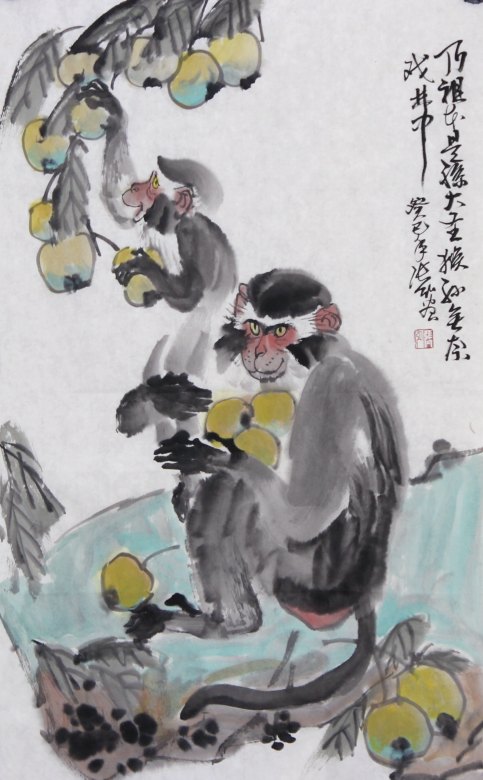 乃祖本是孫大圣猴孙無奈
戏井中
癸巳年